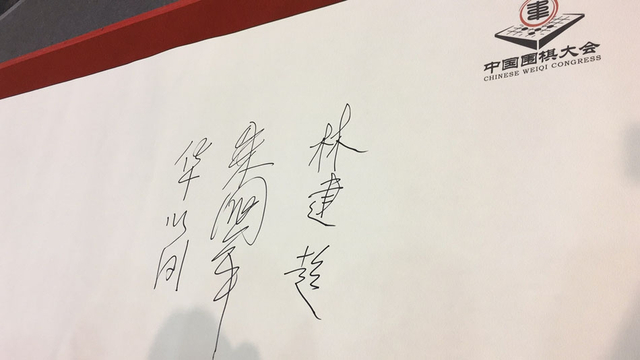 中国围棋大会
CHINESE WEIQI CONGRESS
林建超
朱国平
华以刚